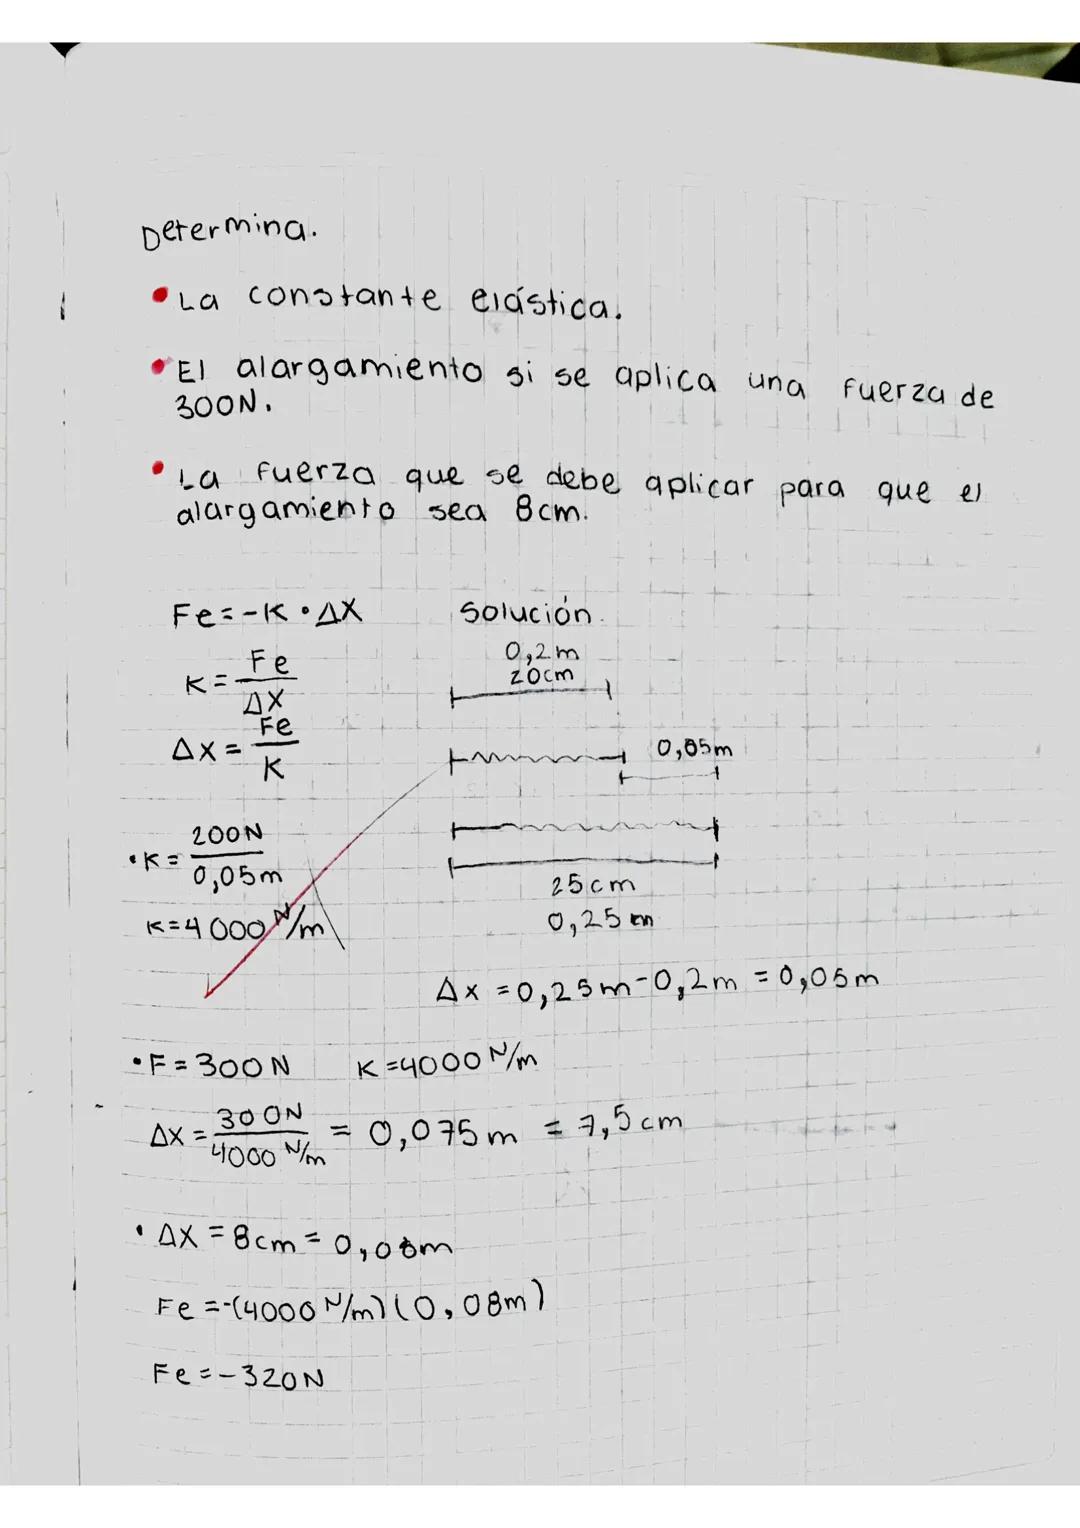 Determina.
• La constante elástica.
• El alargamiento si se aplica una fuerza de
300N.
• La fuerza que se debe aplicar para que el
alargamiento sea 8cm.
Fe=-K•ΔX
Solución.
K=Fe/ΔX
0,2m
20cm
Δx=Fe/K
0,05m
•K=200N/0,05m
25cm
0,25m
K=4000 N/m
Δx=0,25m-0,2m=0,05m
•F=300N K=4000 N/m
ΔX=300N/4000 N/m = 0,075m = 7,5cm
• ΔX=8cm=0,08m
Fe=-(4000 N/m)(0,08m)
Fe=-320N